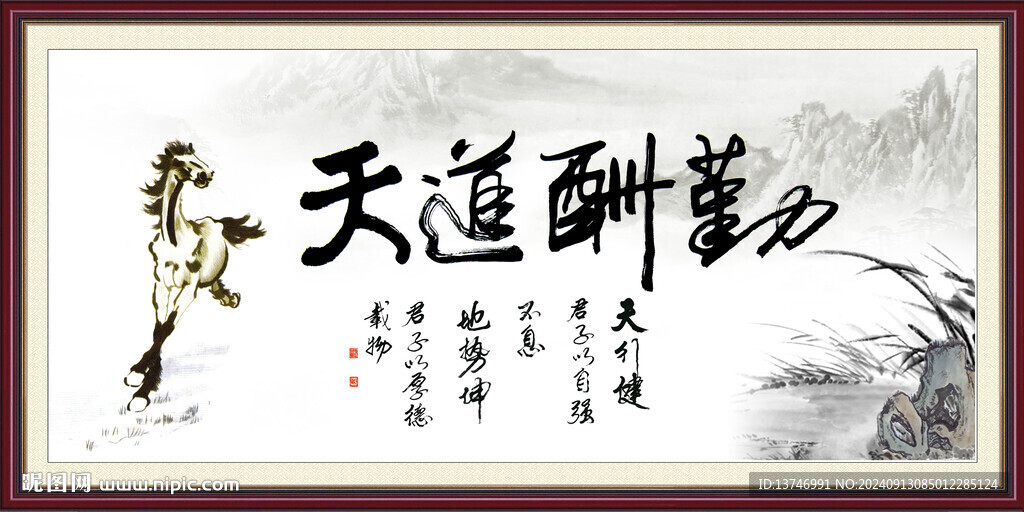 天道酬勤
天行健
君子以自强
不息
地势坤
君子以厚德
载物
昵图网 www.nipic.com
ID:13746991 NO:20240913085012285124